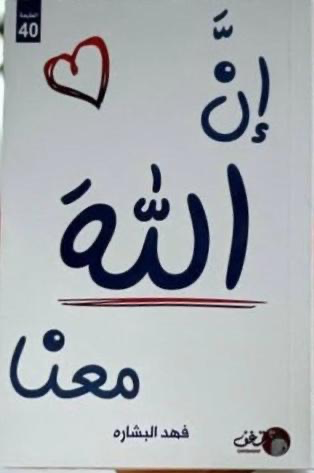 الطبعة
40
إنَّ
اللهَ
معنا
فهد البشاره